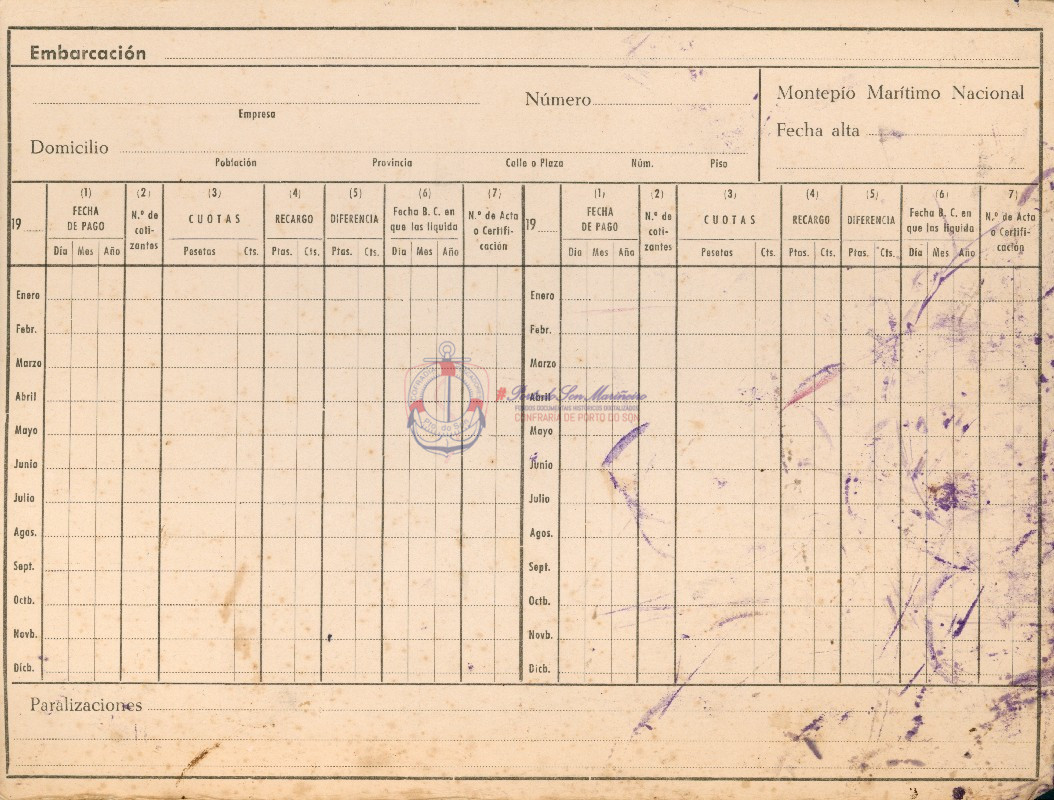 Embarcación
Número
Montepío Marítimo Nacional
Empresa
Fecha alta
Domicilio
Población Provincia Calle o Plaza Núm. Piso
(1) (2) (3) (4) (5) (6) (7) (1) (2) (3) (4) (5) (6) 7)
19 FECHA DE PAGO N.º de coti- zantes CUOTAS RECARGO DIFERENCIA Fecha B. C. en que las liquida N.º de Acta o Certifi- cación 19 FECHA DE PAGO N.º de coti- zantes CUOTAS RECARGO DIFERENCIA Fecha B. C. en que las liquida N.º de Acta o Certifi- cación
Día Mes Año Pesetas Cts. Ptas. Cts. Ptas. Cts. Día Mes Año Día Mes Año Pesetas Cts. Ptas. Cts. Ptas. Cts. Día Mes Año
Enero Enero
Febr. Febr.
Marzo Marzo
Abril Abril
#Porto do Son Mariñeiro
FONDOS DOCUMENTAIS HISTÓRICOS DIGITALIZADOS
CONFRARÍA DE PORTO DO SON
Mayo Mayo
Junio Junio
Julio Julio
Agos. Agos.
Sept. Sept.
Octb. Octb.
Novb. Novb.
Dicb. Dicb.
Paralizaciones